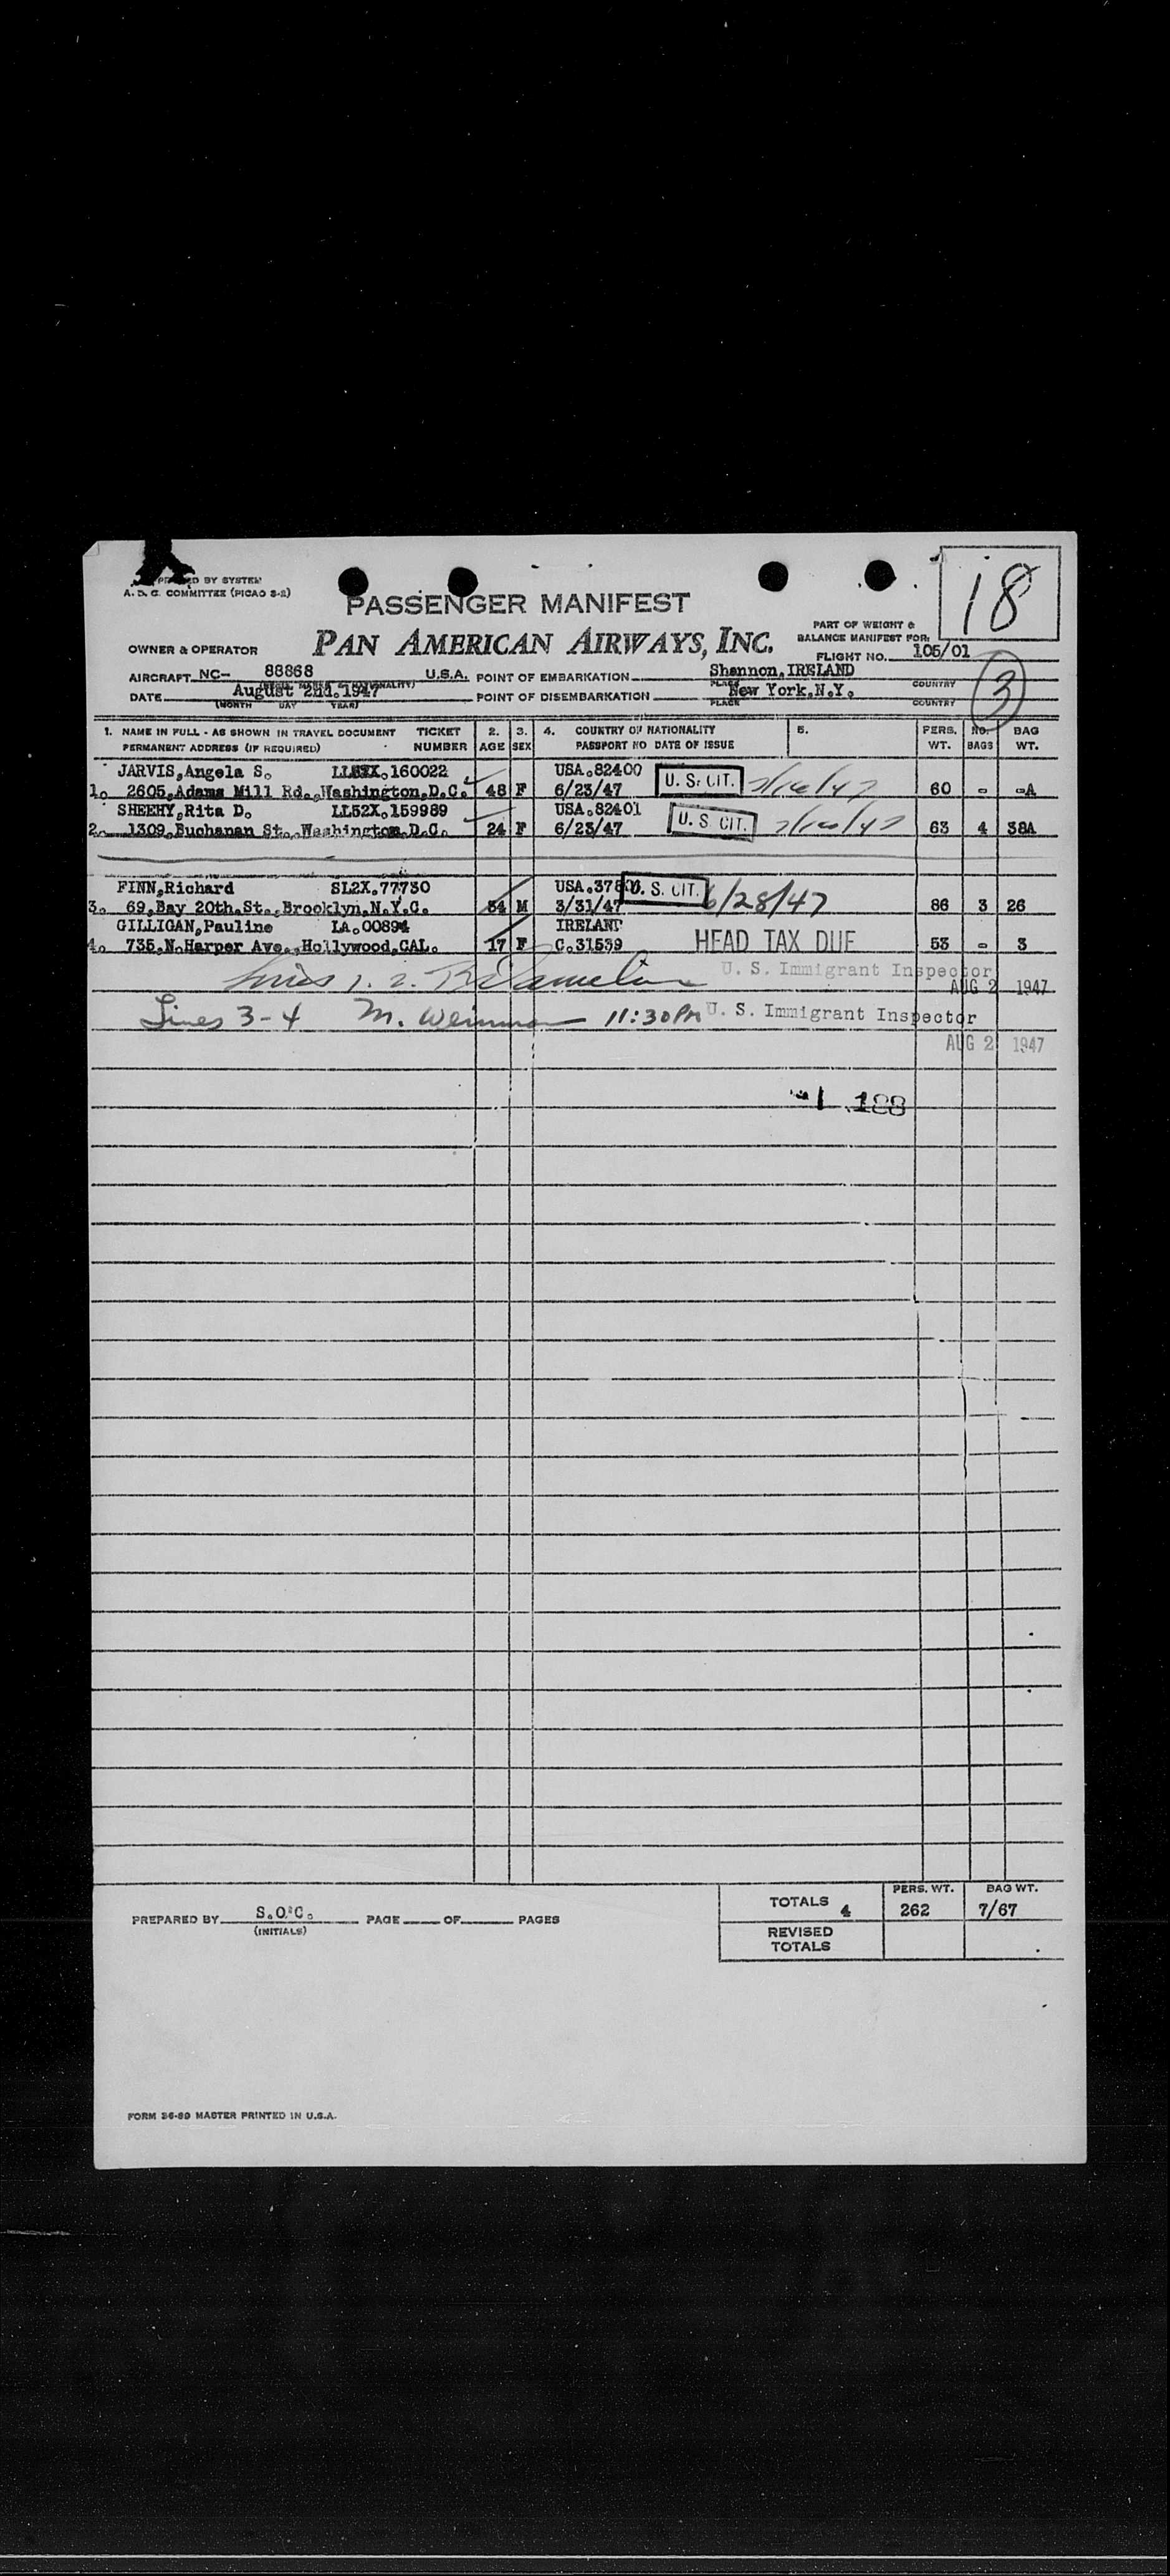 BY SYSTEM
A. D. C. COMMITTEE (PICAO 3-2)
18
PASSENGER MANIFEST
PAN AMERICAN AIRWAYS, INC.
PART OF WEIGHT &
BALANCE MANIFEST FOR:
OWNER & OPERATOR
FLIGHT NO. 105/01
AIRCRAFT NC- 88868 U.S.A. POINT OF EMBARKATION Shannon, IRELAND
PLACE COUNTRY
DATE August 2nd. 1947 POINT OF DISEMBARKATION New York.N.Y.
(MONTH DAY YEAR) PLACE COUNTRY
3
1. NAME IN FULL - AS SHOWN IN TRAVEL DOCUMENT TICKET 2. 3. 4. COUNTRY OF NATIONALITY 5. PERS. NO. BAG
PERMANENT ADDRESS (IF REQUIRED) NUMBER AGE SEX PASSPORT NO DATE OF ISSUE WT. BAGS WT.
JARVIS,Angela S. 160022 USA.82400
1. 2605,Adams Mill Rd.,Washington,D.C. 48 F 6/23/47 U. S. CIT. 60 - -A
SHEEHY,Rita D. LL52X.159989 USA.82401
2. 1309,Buchanan St.,Washington,D.C. 24 F 6/23/47 U. S. CIT. 63 4 38A
FINN,Richard SL2X.77730 USA. U. S. CIT.
3. 69,Bay 20th.St.,Brooklyn,N.Y.C. 54 M 3/31/47 6/28/47 86 3 26
GILLIGAN,Pauline LA.00894 IRELAND
4. 735.N.Harper Ave.,Hollywood,CAL. 17 F C.31539 HEAD TAX DUE 53 - 3
Lines 1. 2. U. S. Immigrant Inspector
AUG 2 1947
Lines 3-4 M. Weinman 11:30PM U. S. Immigrant Inspector
AUG 2 1947
188
PERS. WT. BAG WT.
TOTALS 4 262 7/67
PREPARED BY S.O.C. PAGE OF PAGES
(INITIALS)
REVISED
TOTALS
FORM 36-89 MASTER PRINTED IN U.S.A.